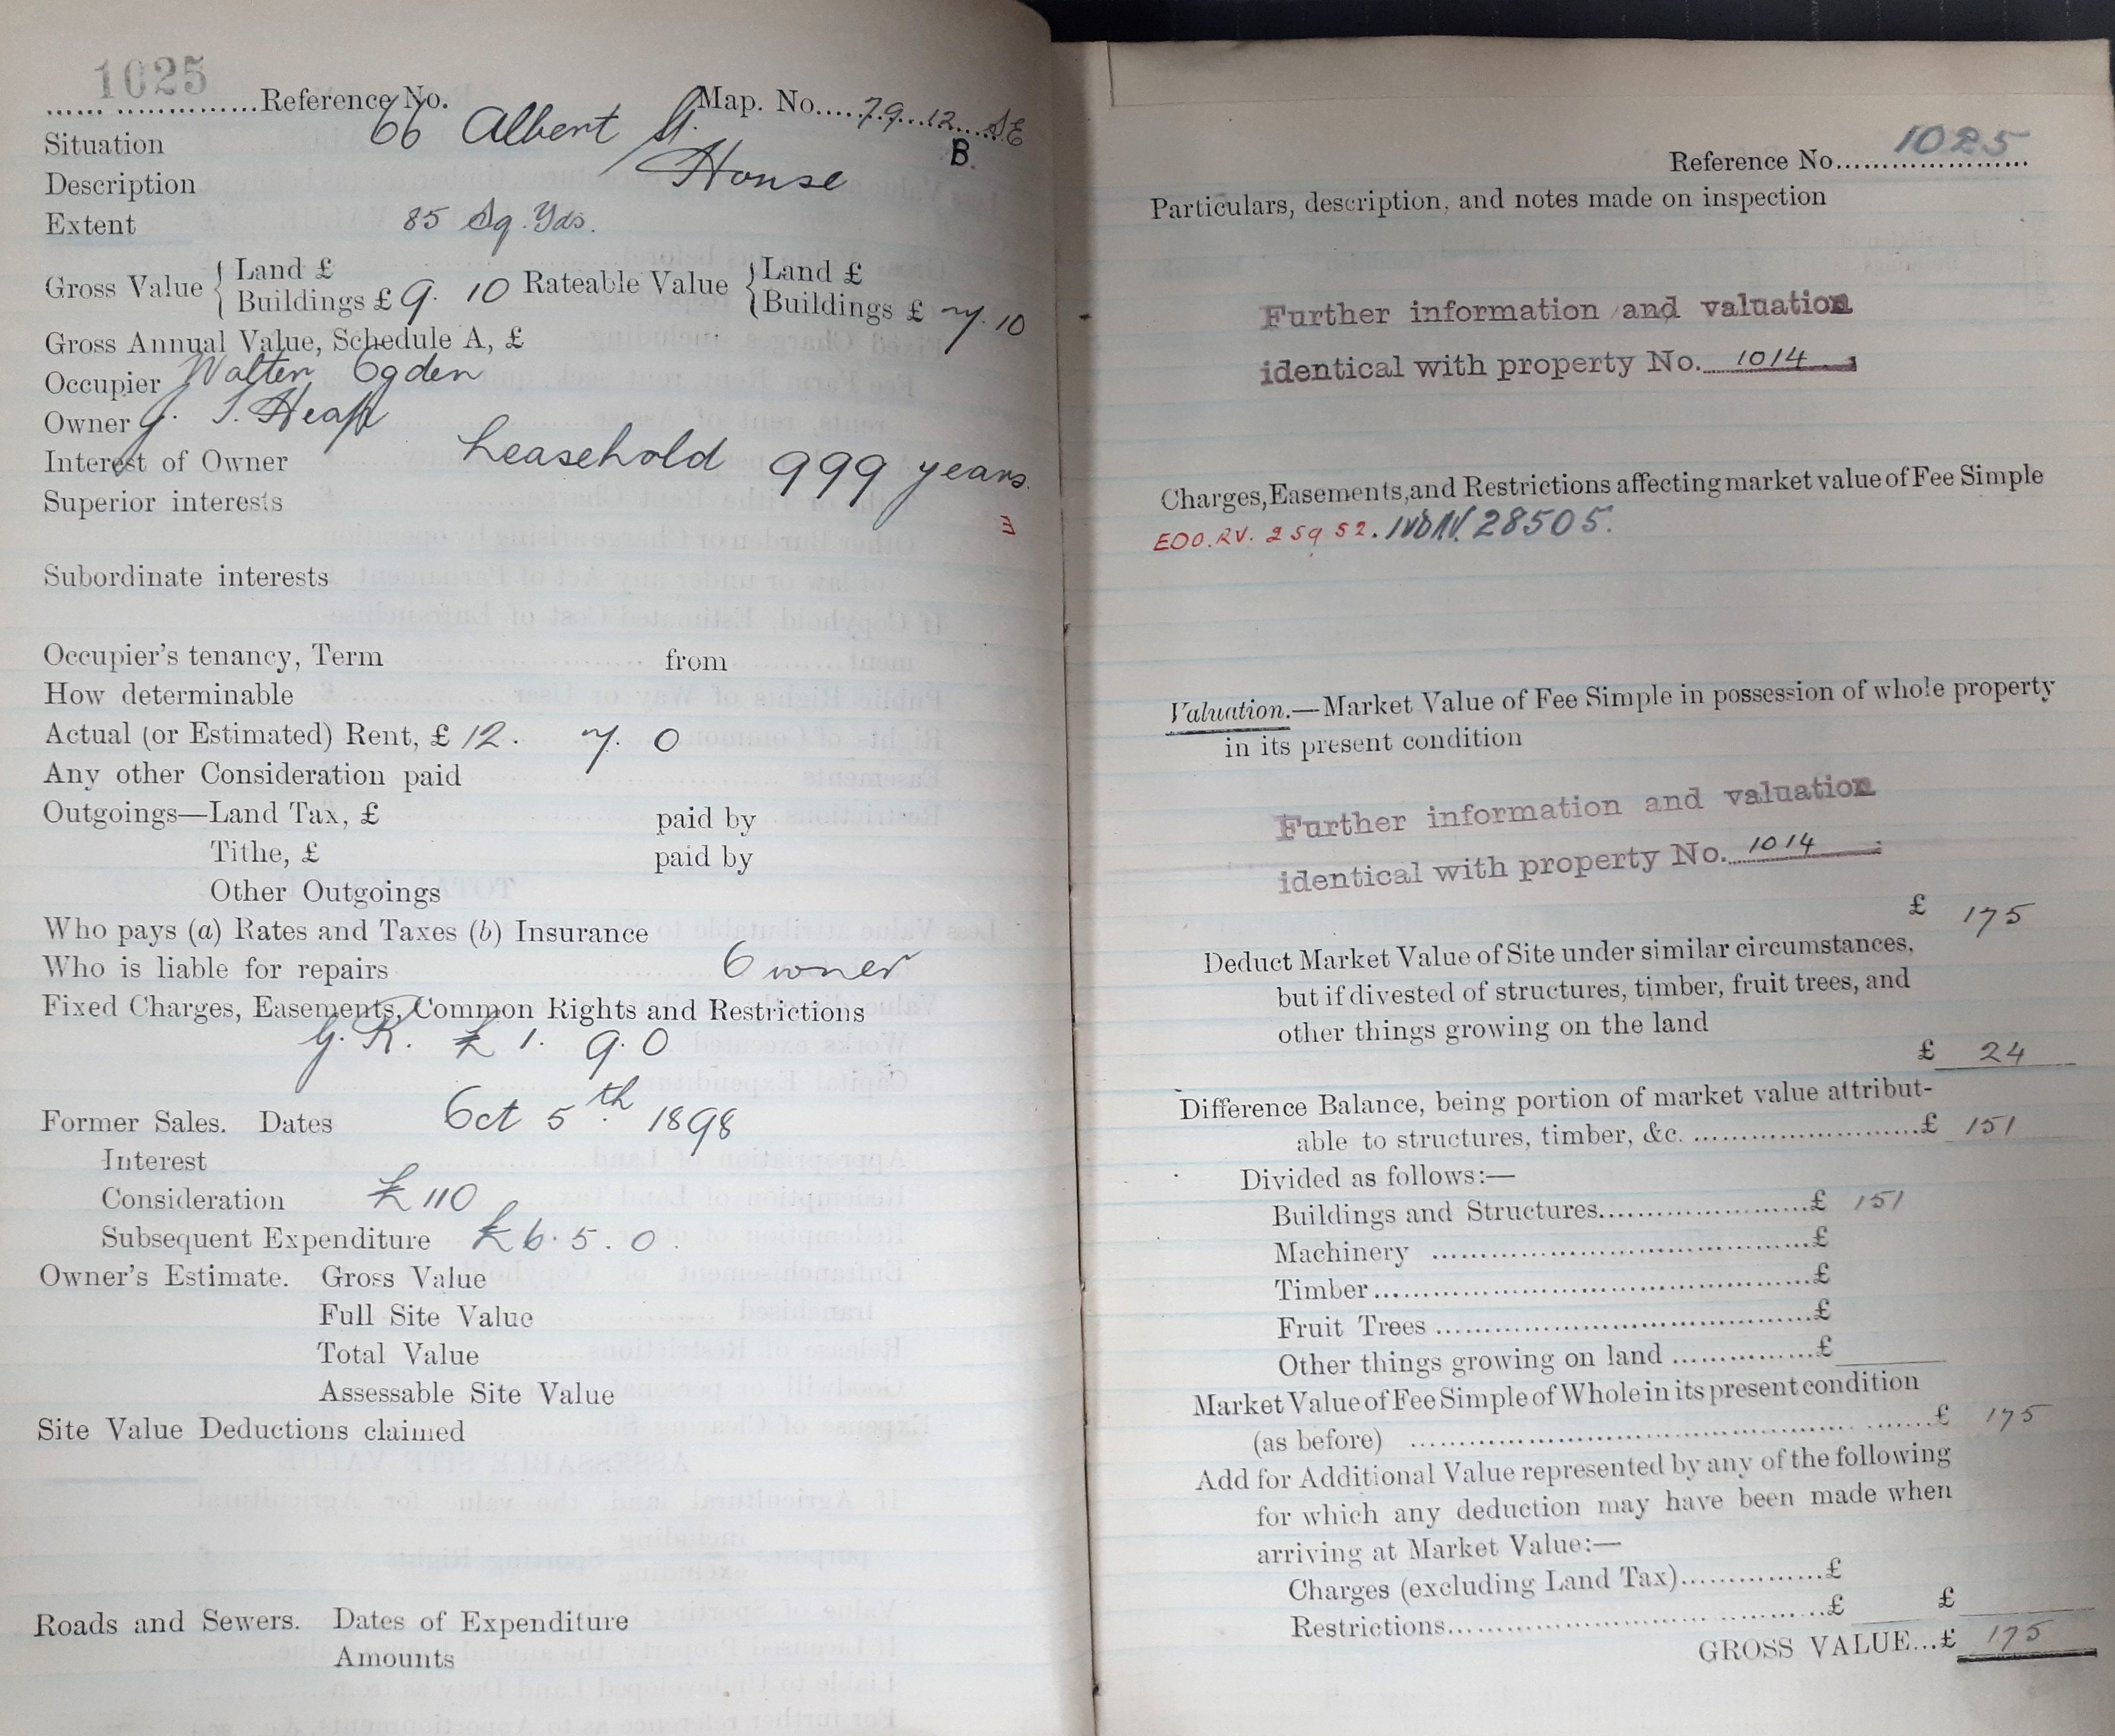 1025
Reference No. Map. No. 79. 12. SE
B.
Situation 66 Albert St.
Description House
Extent 85 Sq. Yds.
Gross Value { Land £ Rateable Value { Land £
Buildings £ 9. 10 Buildings £ 7. 10
Gross Annual Value, Schedule A, £
Occupier Walter Ogden
Owner J. T. Heap
Interest of Owner Leasehold 999 years.
Superior interests
Subordinate interests
Occupier's tenancy, Term from
How determinable
Actual (or Estimated) Rent, £ 12. 7. 0
Any other Consideration paid
Outgoings—Land Tax, £ paid by
Tithe, £ paid by
Other Outgoings
Who pays (a) Rates and Taxes (b) Insurance
Who is liable for repairs Owner
Fixed Charges, Easements, Common Rights and Restrictions
G. R. £ 1. 9. 0
Former Sales. Dates Oct 5th 1898
Interest
Consideration £110
Subsequent Expenditure £6. 5. 0.
Owner's Estimate. Gross Value
Full Site Value
Total Value
Assessable Site Value
Site Value Deductions claimed
Roads and Sewers. Dates of Expenditure
Amounts
Reference No. 1025
Particulars, description, and notes made on inspection
Further information and valuation
identical with property No. 1014
Charges, Easements, and Restrictions affecting market value of Fee Simple
28505.
Valuation.—Market Value of Fee Simple in possession of whole property
in its present condition
Further information and valuation
identical with property No. 1014
£ 175
Deduct Market Value of Site under similar circumstances,
but if divested of structures, timber, fruit trees, and
other things growing on the land
£ 24
Difference Balance, being portion of market value attribut-
able to structures, timber, &c. £ 151
Divided as follows:—
Buildings and Structures £ 151
Machinery £
Timber £
Fruit Trees £
Other things growing on land £
Market Value of Fee Simple of Whole in its present condition
(as before) £ 175
Add for Additional Value represented by any of the following
for which any deduction may have been made when
arriving at Market Value:—
Charges (excluding Land Tax) £
Restrictions £ £
GROSS VALUE...£ 175